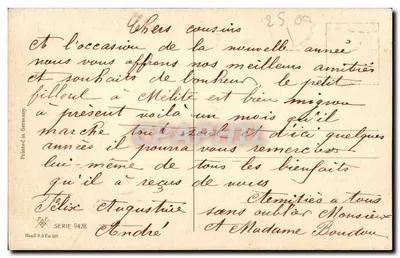 Chers cousins
A l'occasion de la nouvelle année
nous vous offrons nos meilleurs amitiés
et souhaits de bonheur, le petit
filloul à Mélite est bien mignon
à présent voilà un mois qu'il
marche et d'ici quelques
années il pourra vous remercier
lui même de tous les bienfaits
qu'il a reçus de vous
Félix Augustine
André
Amitiés a tous
sans oublier Monsieur
et Madame Boudou
Printed in Germany.
SERIE 9428